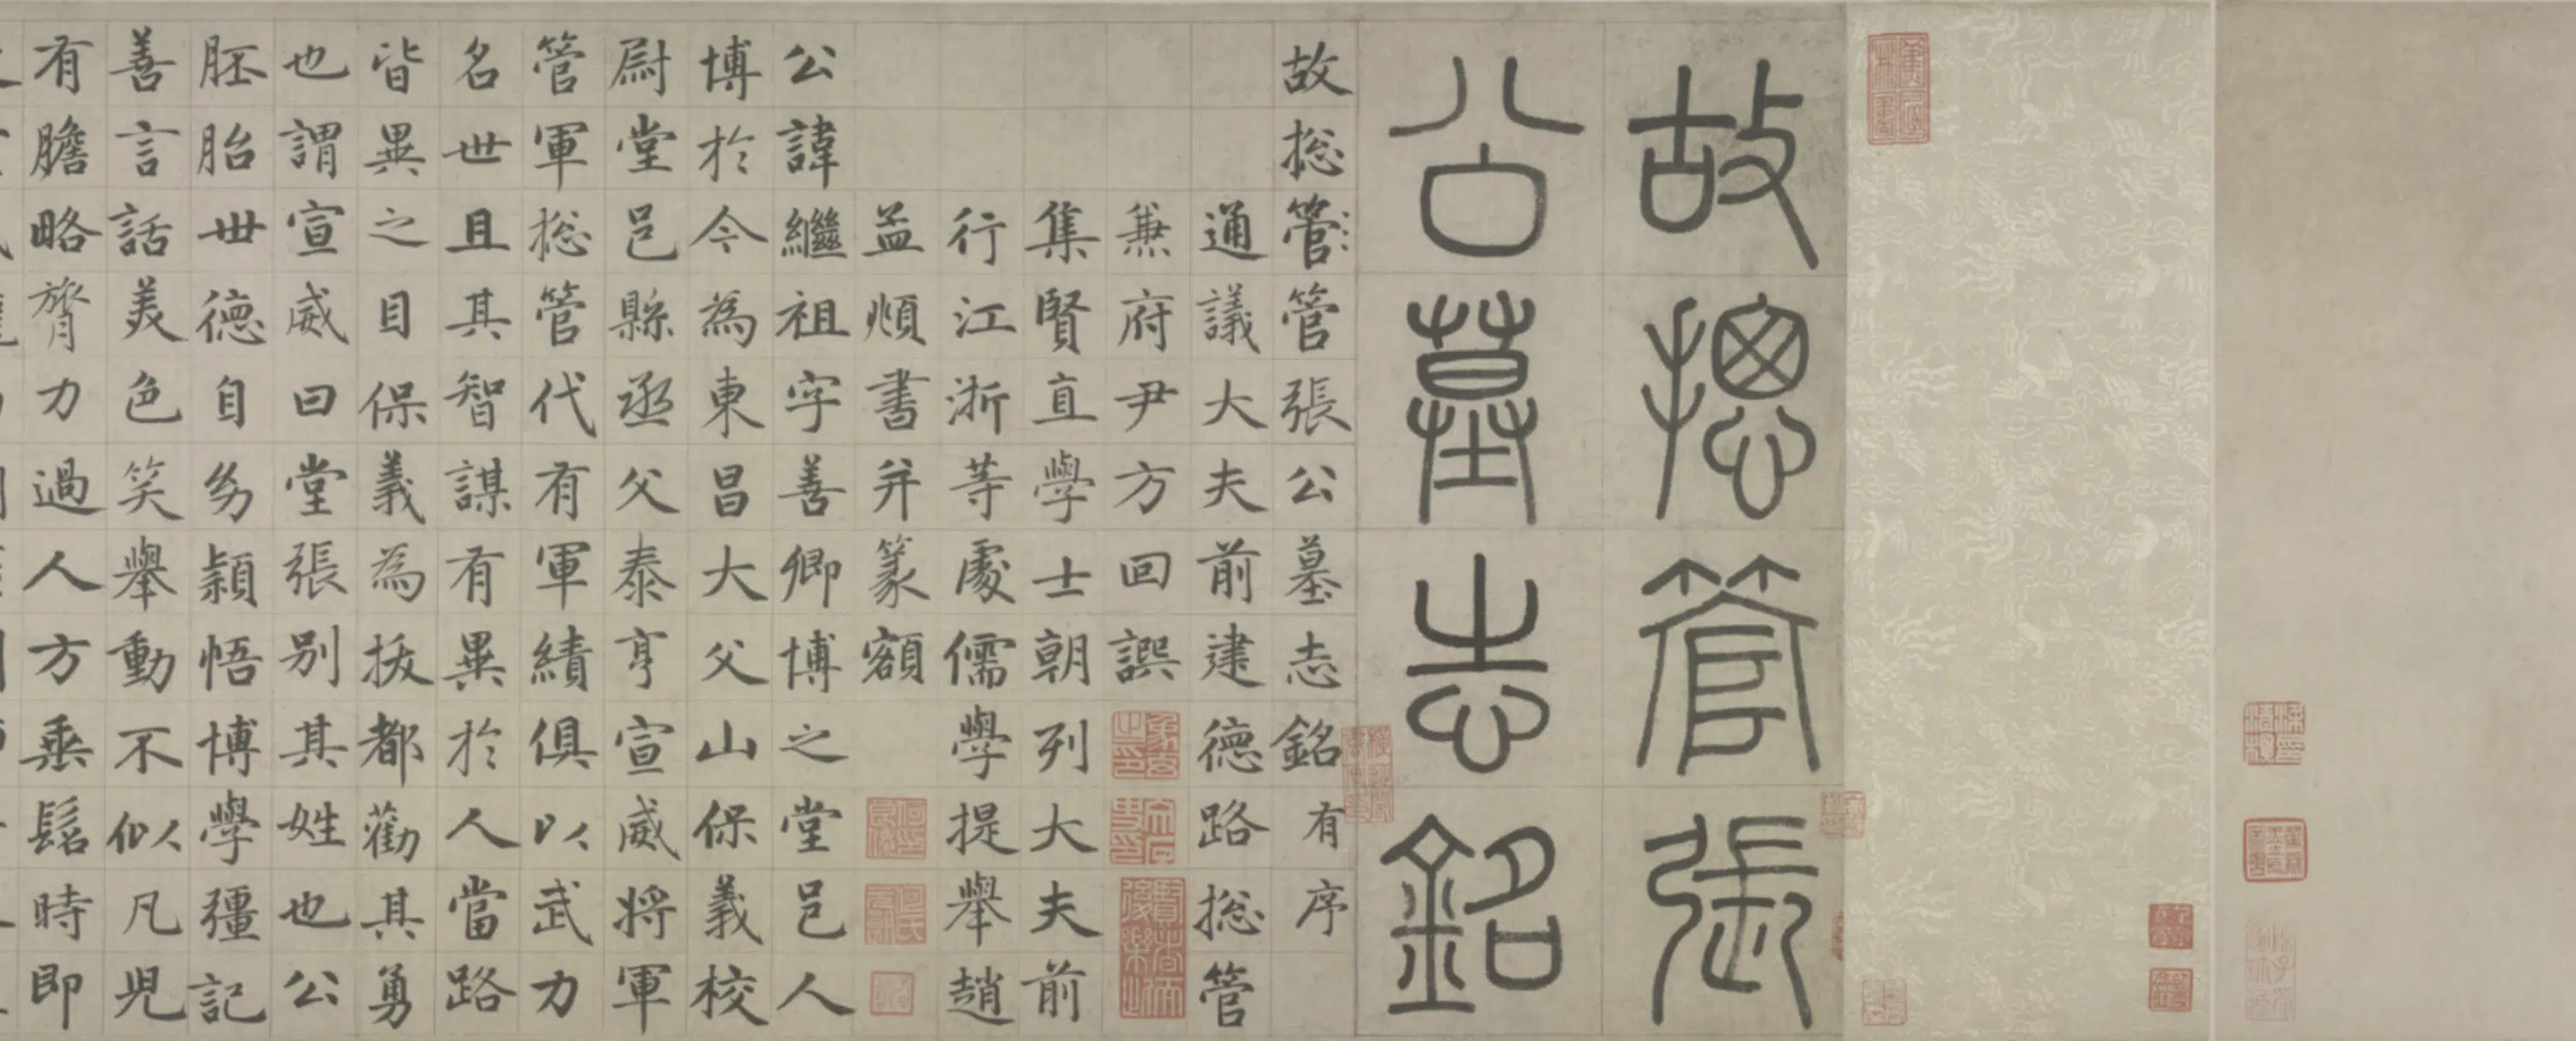 故摠管張
公墓志銘
故捴管管張公墓志銘有序
通議大夫前建德路捴管
兼府尹方回譔
集賢直學士朝列大夫前
行江浙等處儒學提舉趙
孟頫書并篆額
公諱繼祖字善卿博之堂邑人
博於今為東昌大父山保義校
尉堂邑縣丞父泰亨宣威將軍
管軍捴管代有軍績俱以武力
名世且其智謀有異於人當路
皆異之目保義為拔都勸其勇
也謂宣威曰堂張別其姓也公
胚胎世德自幼穎悟博學彊記
善言話美色笑舉動不似凡兒
有膽略膂力過人方垂髫時即